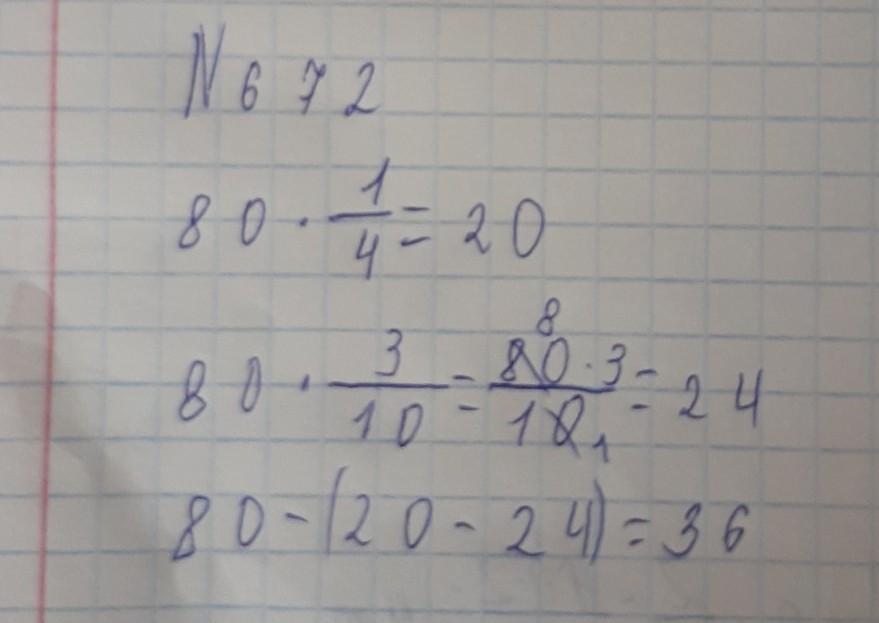 N 672
80 · 1/4 = 20
80 · 3/10 = 80 8 · 3/10 1 = 24
80 - (20 - 24) = 36